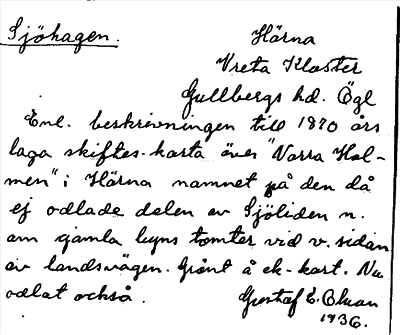 Sjöhagen. Härna
Vreta Kloster
Gullbergs hd. Ögl
Enl. beskrivningen till 1870 års
laga skiftes-karta över "Norra Hol-
men" i Härna namnet på den då
ej odlade delen av Sjöliden n.
om gamla byns tomter vid v. sidan
av landsvägen. Grönt å ek-kart. Nu
odlat också. Gustaf E.
1936.